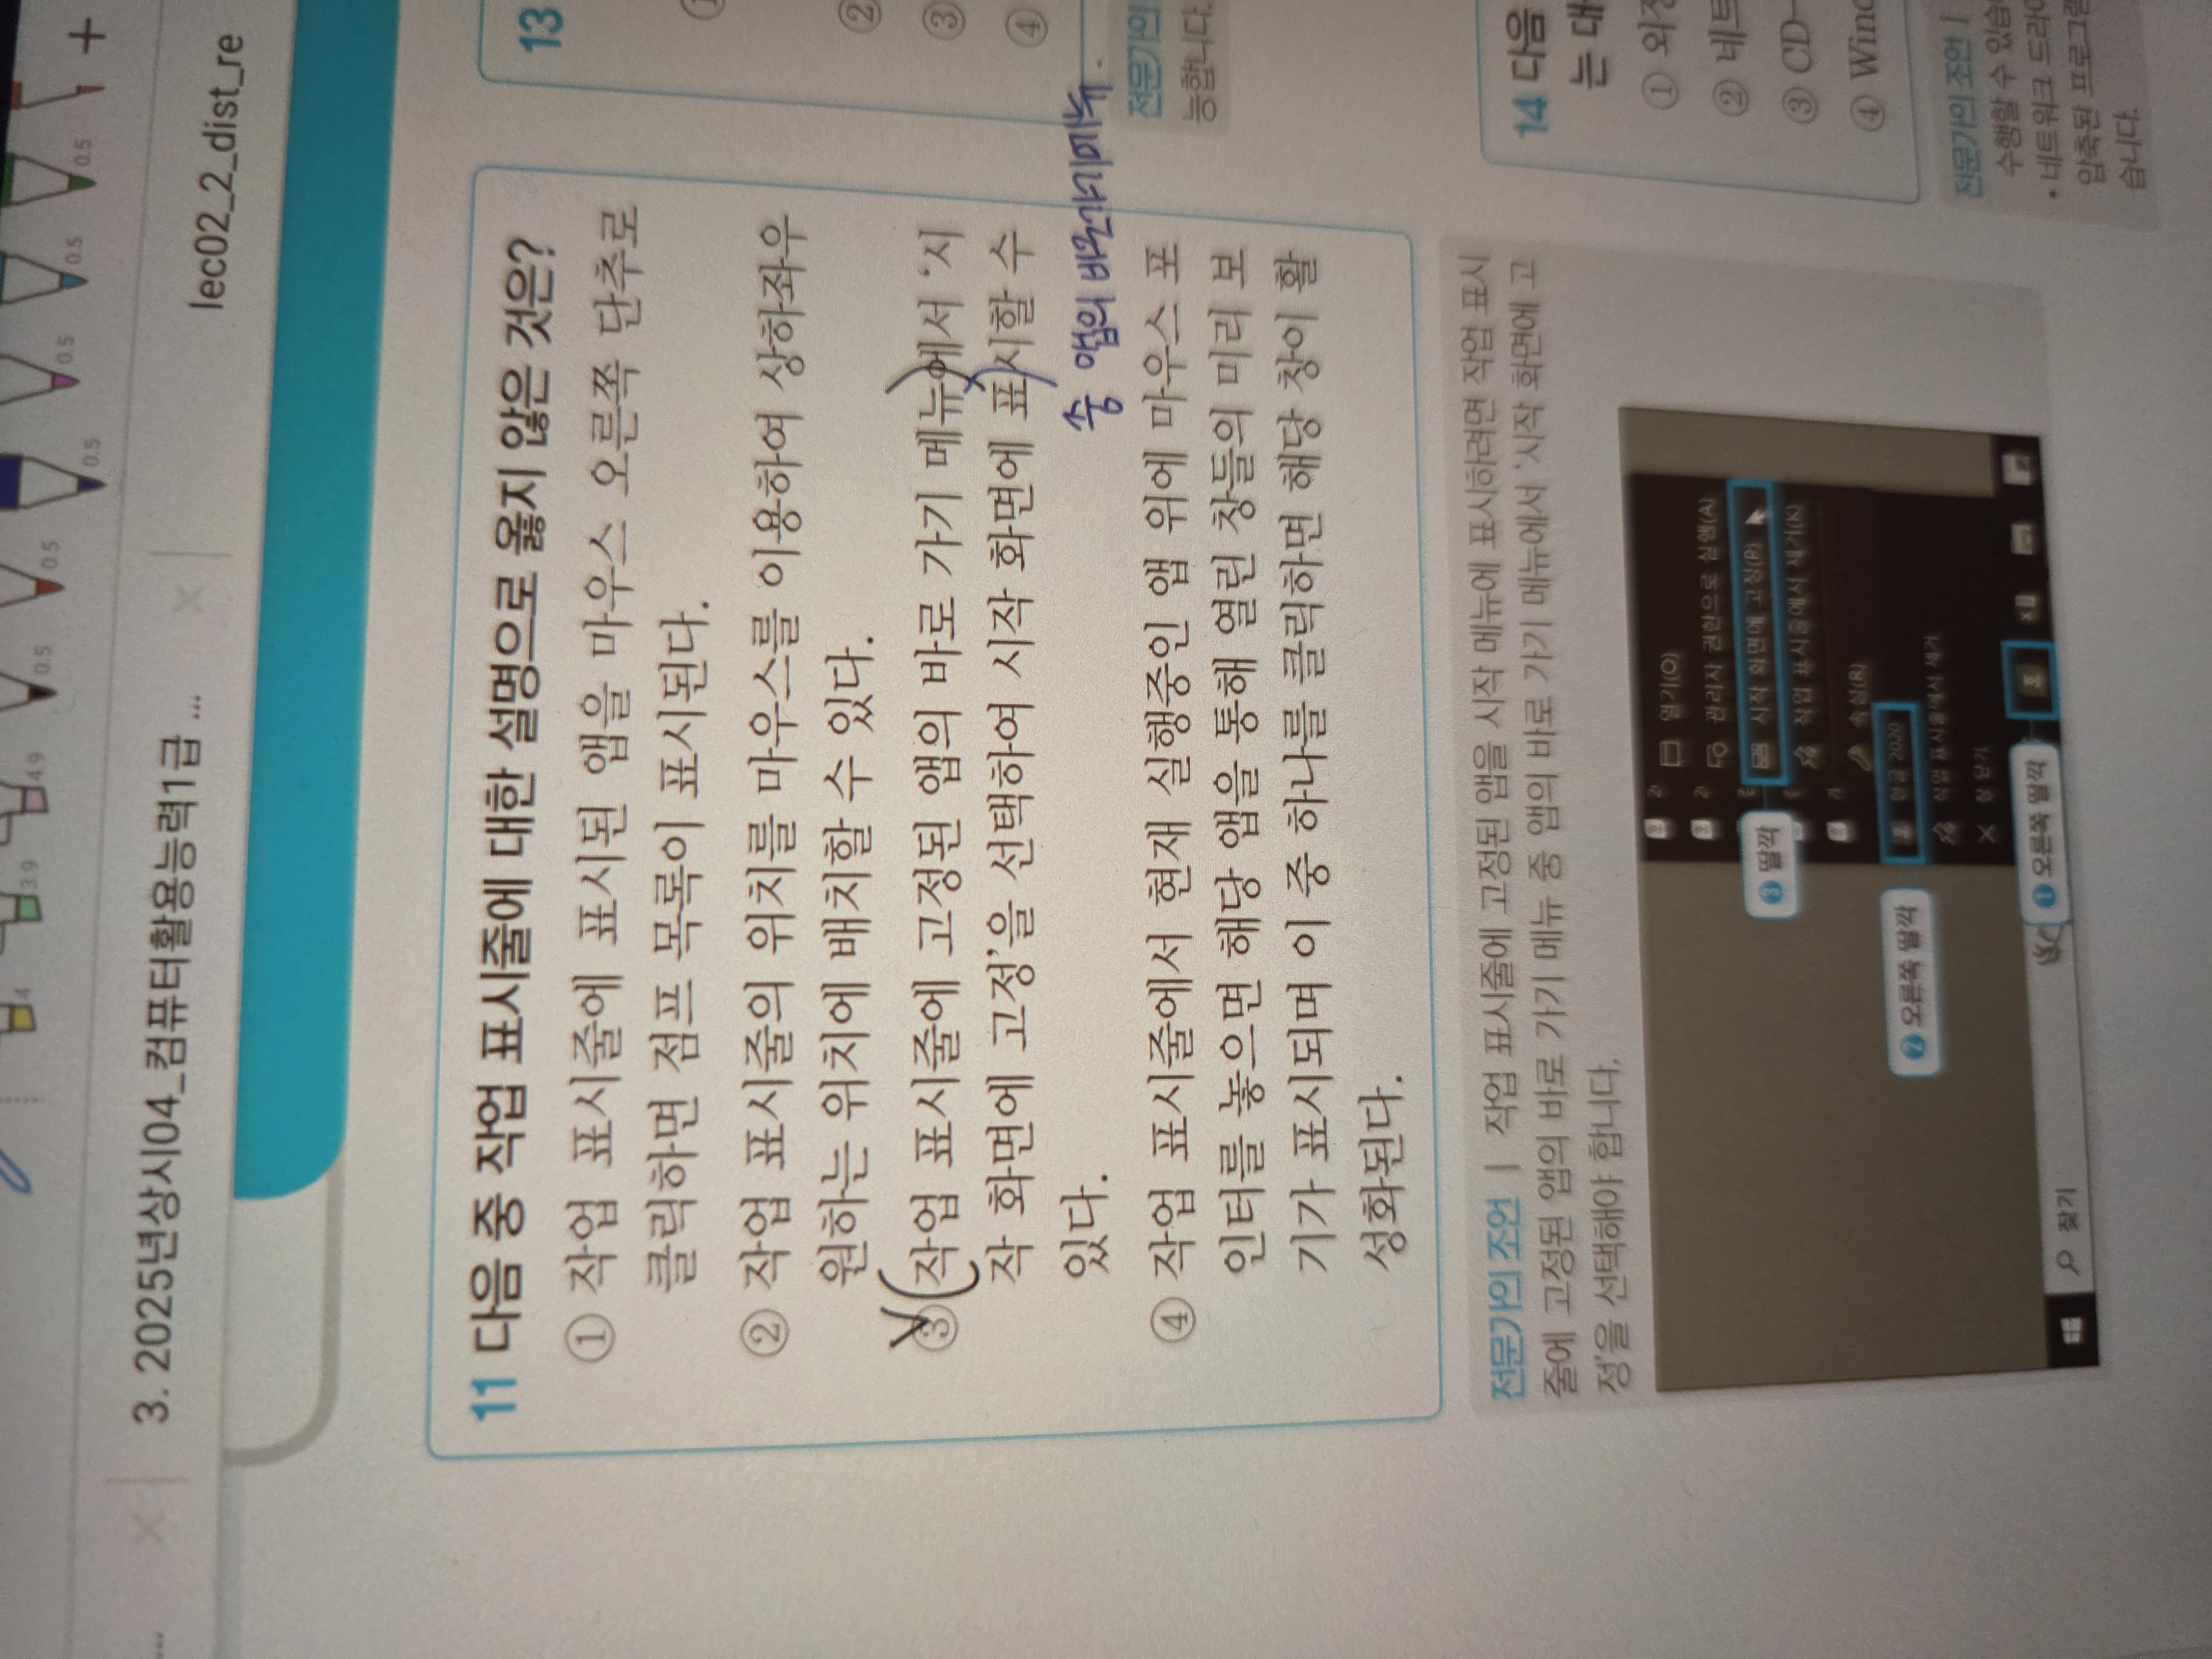 0.5
0.5
0.5
0.5
0.5
0.5
4.9
3.9
4
3. 2025년상시04_컴퓨터활용능력1급 ...
lec02_2_dist_re
11 다음 중 작업 표시줄에 대한 설명으로 옳지 않은 것은?
① 작업 표시줄에 표시된 앱을 마우스 오른쪽 단추로
클릭하면 점프 목록이 표시된다.
② 작업 표시줄의 위치를 마우스를 이용하여 상하좌우
원하는 위치에 배치할 수 있다.
③ 작업 표시줄에 고정된 앱의 바로 가기 메뉴에서 '시
작 화면에 고정'을 선택하여 시작 화면에 표시할 수
있다.
중 앱의 바로가기메뉴.
④ 작업 표시줄에서 현재 실행중인 앱 위에 마우스 포
인터를 놓으면 해당 앱을 통해 열린 창들의 미리 보
기가 표시되며 이 중 하나를 클릭하면 해당 창이 활
성화된다.
전문가의 조언 | 작업 표시줄에 고정된 앱을 시작 메뉴에 표시하려면 작업 표시
줄에 고정된 앱의 바로 가기 메뉴 중 앱의 바로 가기 메뉴에서 '시작 화면에 고
정'을 선택해야 합니다.
열기(O)
관리자 권한으로 실행(A)
시작 화면에 고정(P)
작업 표시줄에서 제거(K)
속성(R)
한글 2020
작업 표시줄에서 제거
창 닫기
❸ 딸깍
❷ 오른쪽 딸깍
❶ 오른쪽 딸깍
찾기
13
②
③
④
전문가의
능합니다.
14 다음
는 대
① 외장
② 네트
③ CD-
④ Wind
전문가의 조언 |
수행할 수 있습
• 네트워크 드라이
압축된 프로그램
습니다.